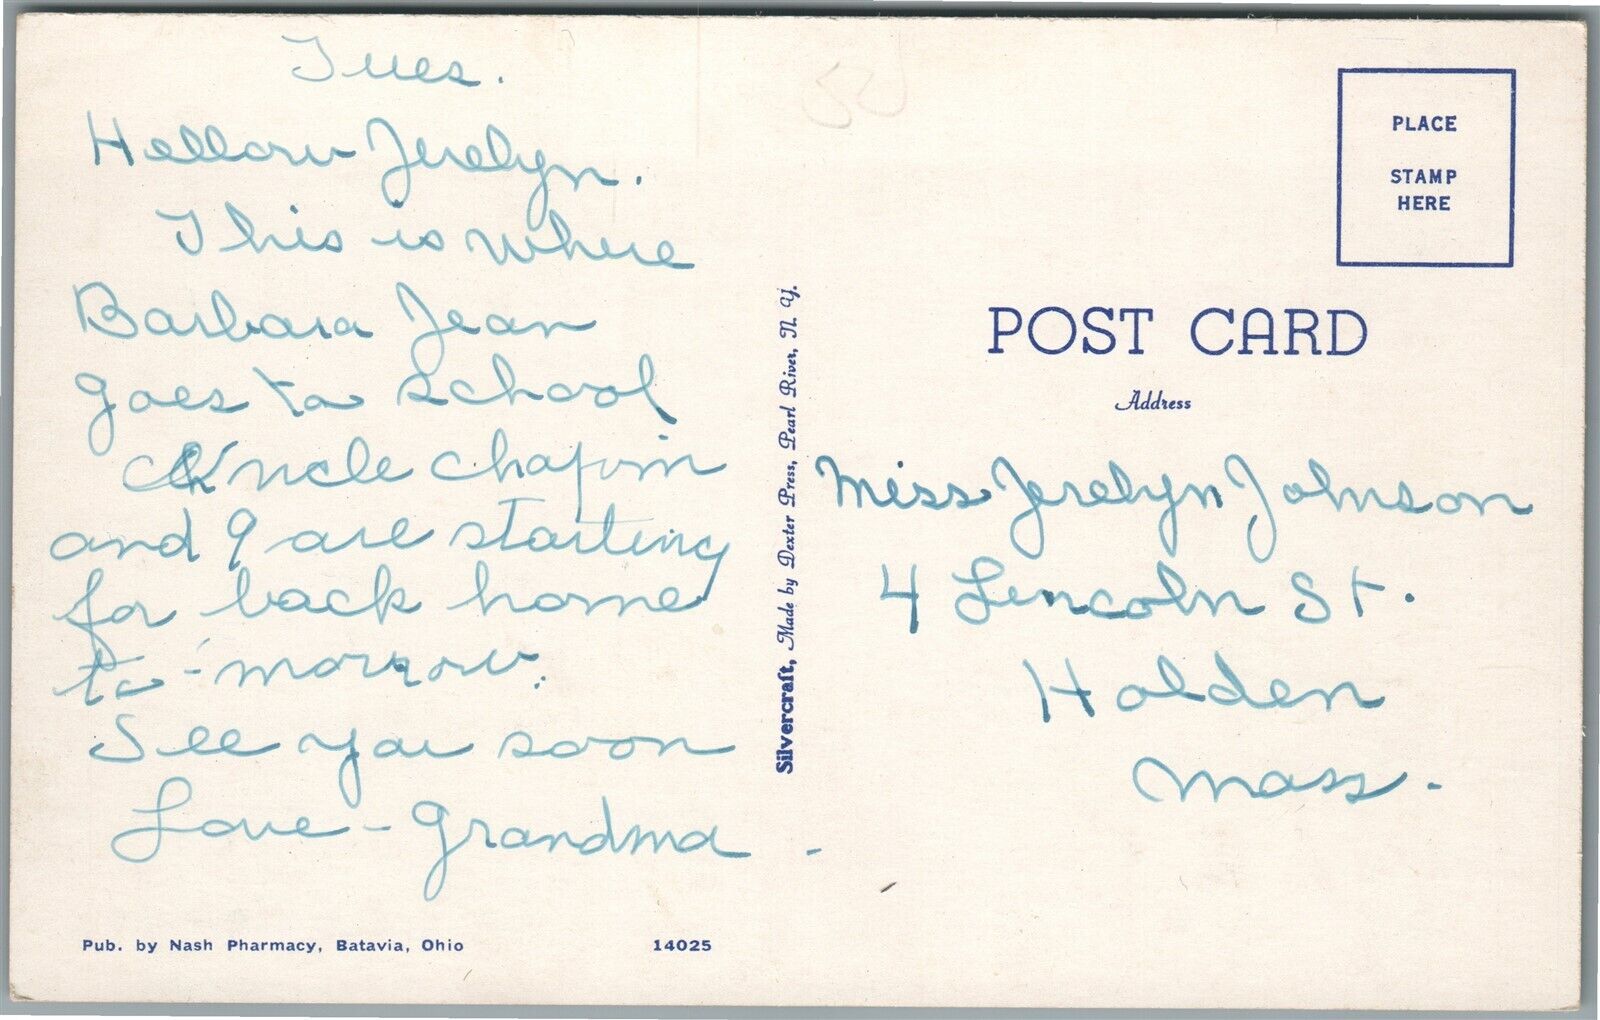 Tues.
Hellow Jerelyn.
This is where
Barbara Jean
goes to school
Uncle Chapin
and I are starting
for back home
to-morrow.
See you soon
Love - Grandma -
Pub. by Nash Pharmacy, Batavia, Ohio
14025
Silvercraft, Made by Dexter Press, Pearl River, N. Y.
PLACE
STAMP
HERE
POST CARD
Address
Miss Jerelyn Johnson
4 Lincoln St.
Holden
Mass.